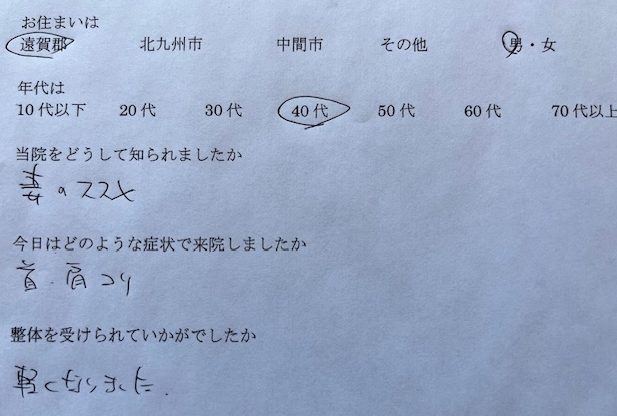 お住まいは
遠賀郡 北九州市 中間市 その他 男・女
年代は
10代以下 20代 30代 40代 50代 60代 70代以上
当院をどうして知られましたか
妻のススメ
今日はどのような症状で来院しましたか
首・肩コリ
整体を受けられていかがでしたか
軽くなりました。